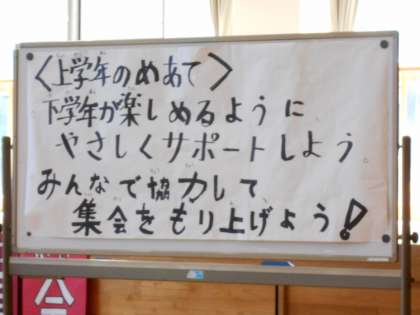 ＜上学年のめあて＞
下学年が楽しめるように
やさしくサポートしよう
みんなで協力して
集会をもり上げよう!